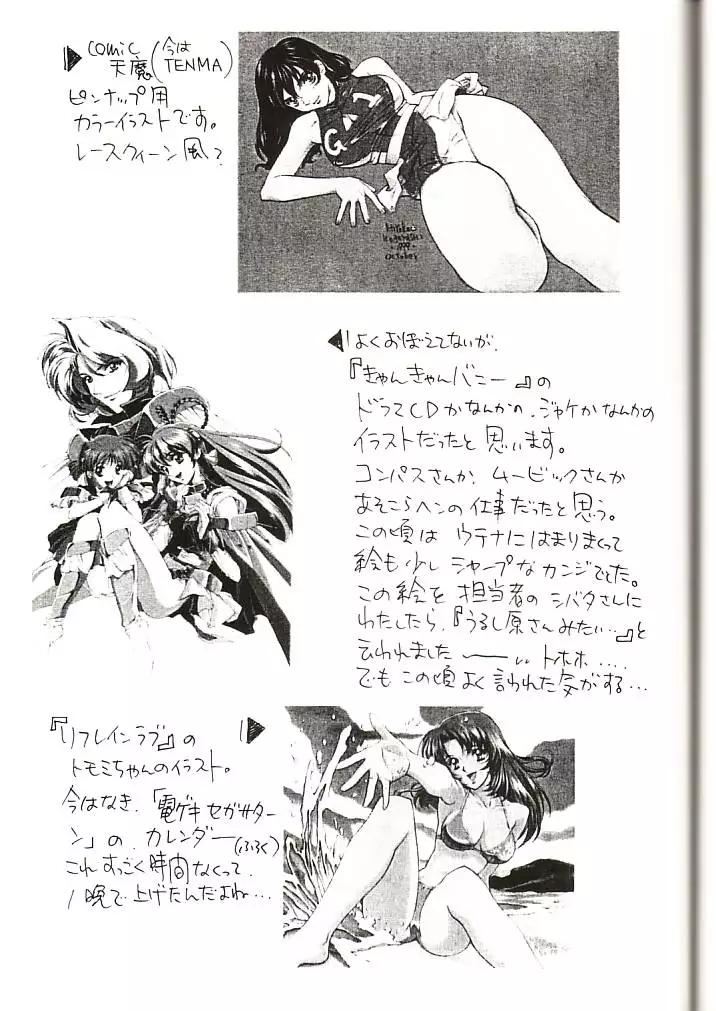 comic
天魔(今は
TENMA)
ピンナップ用
カラーイラストです。
レースクィーン風?
GAI
Hirokazu
1999
October
よくおぼえてないが、
『きゃんきゃんバニー』の
ドラマCDかなんかの、ジャケかなんかの
イラストだったと思います。
コンパスさんか、ムービックさんか
あそこらヘンの仕事だったと思う。
この頃は ウテナにはまりまくって
絵も少し シャープなカンジでした。
この絵を 担当者の シバタさんに
わたしたら、『うるし原さんみたい…』と
云われました──… トホホ….
でも この頃 よく 言われた気がする…
『リフレインラブ』の
トモミちゃんのイラスト。
今はなき、「電ゲキセガサター
ン」の カレンダー(ふろく)
これ すっごく時間なくって
1晩で上げたんだよね…